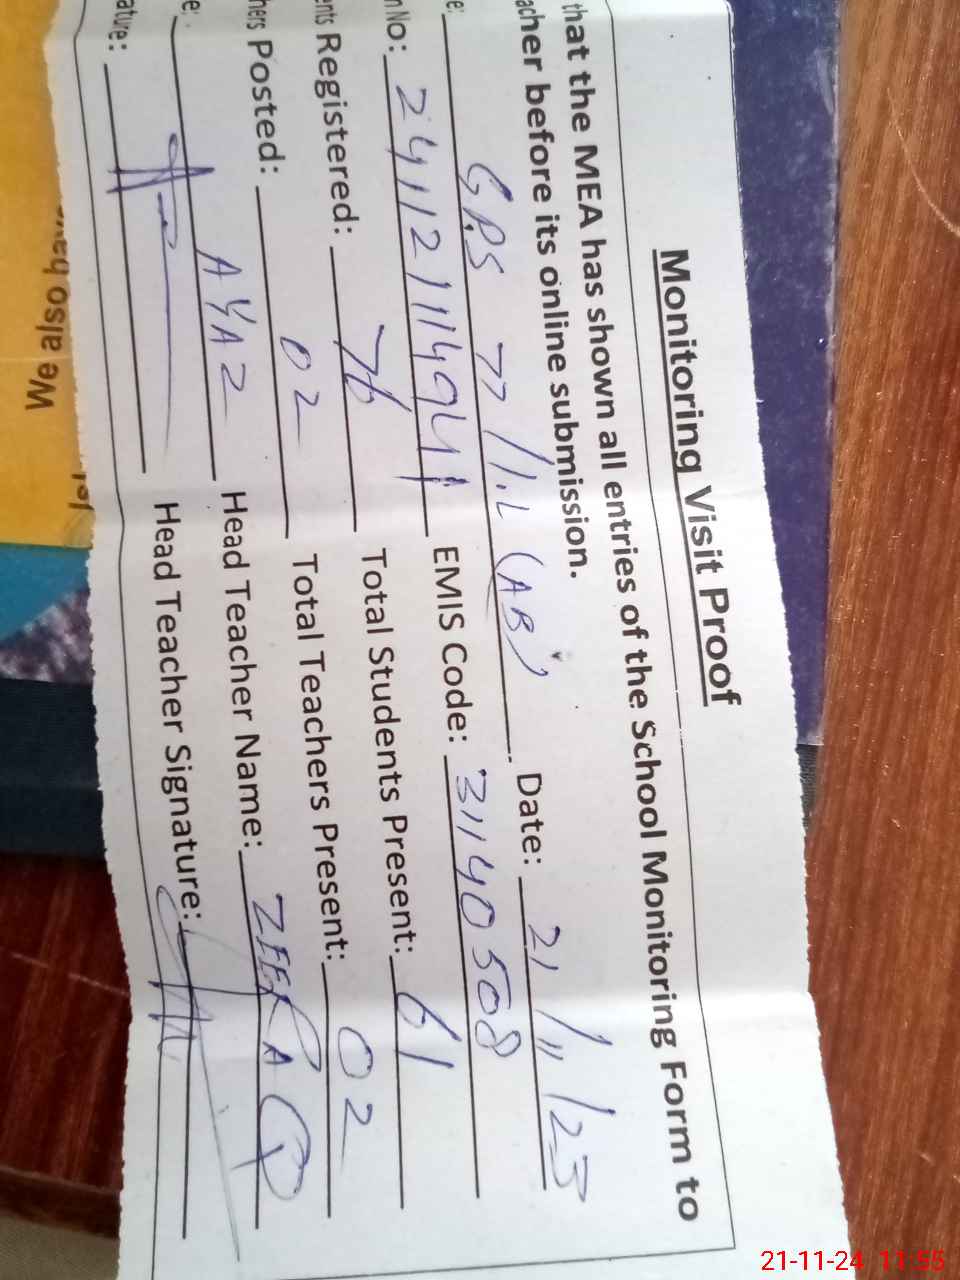 Monitoring Visit Proof
that the MEA has shown all entries of the School Monitoring Form to
acher before its online submission.
e: GPS 77/1.L (AB) Date: 21/11/23
n No: EMIS Code: 31140508
ents Registered: 76 Total Students Present: 61
hers Posted: 02 Total Teachers Present: 02
e: AYAZ Head Teacher Name:
ature: Head Teacher Signature:
We also hav
21-11-24 11:55